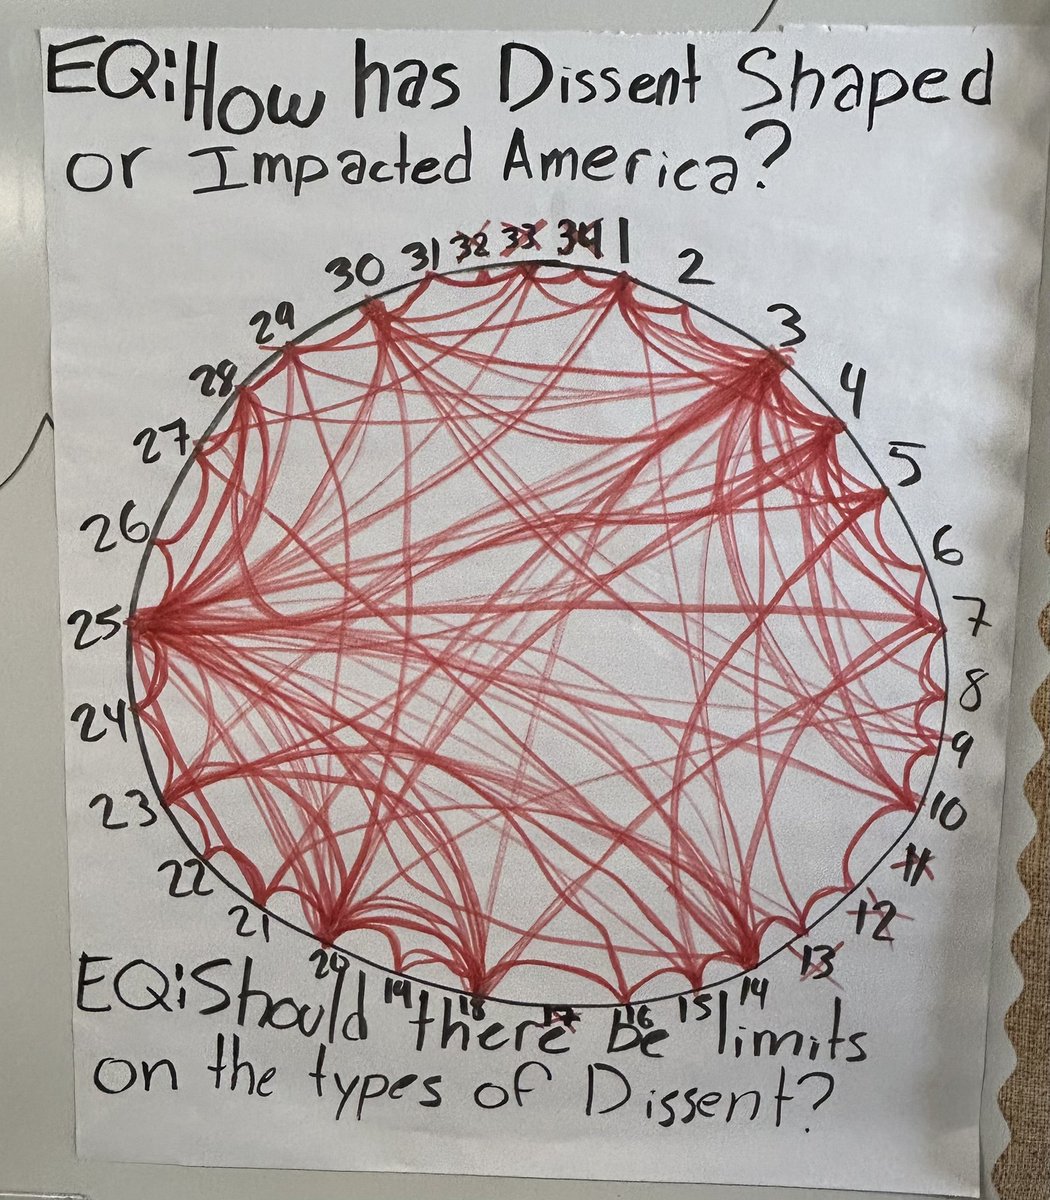 EQ: How has Dissent Shaped
or Impacted America?
1
2
3
4
5
6
7
8
9
10
11
12
13
14
15
16
17
18
19
20
21
22
23
24
25
26
27
28
29
30
31
32
33
34
EQ: Should there be limits
on the types of Dissent?